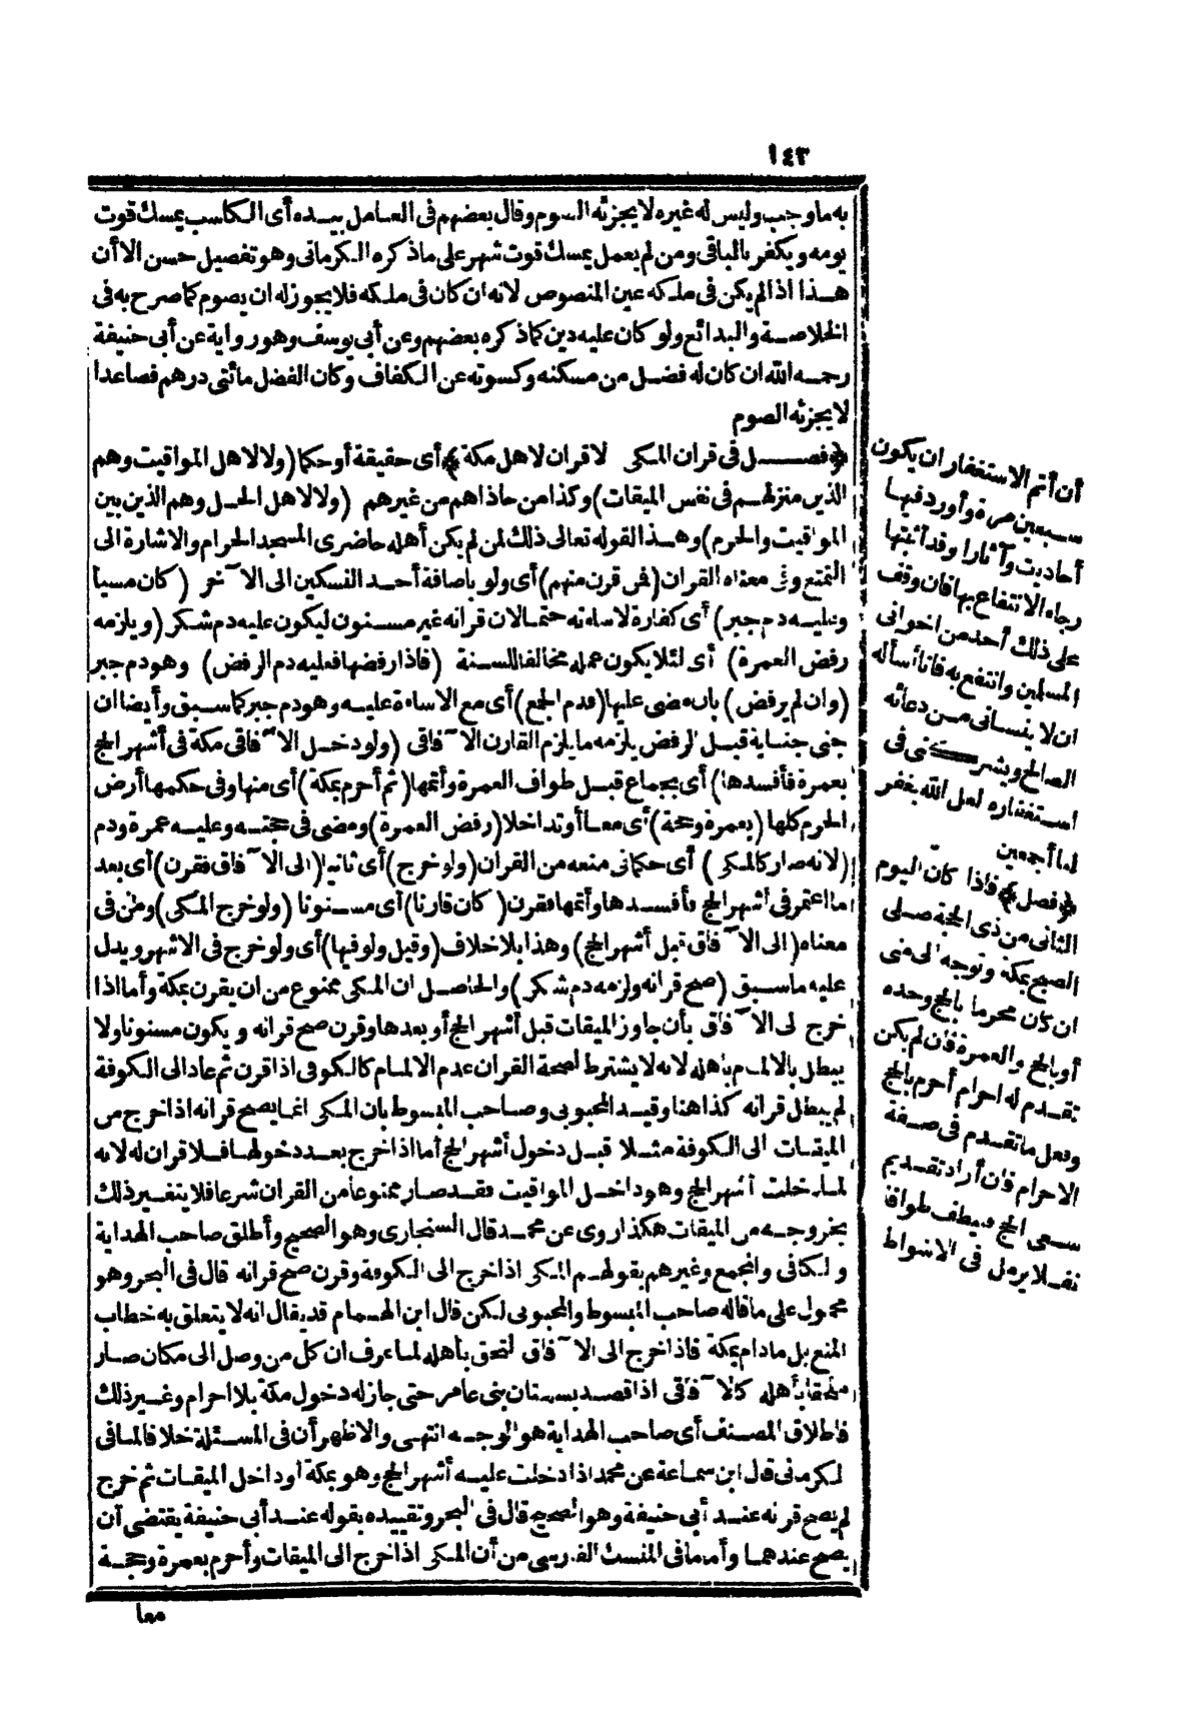 ١٤٣
به ما وجب وليس له غيره لا يجزئه الصوم وقال بعضهم في العامل بيده أي الكاسب يمسك قوت
يومه ويكفر بالباقي ومن لم يعمل يمسك قوت شهر على ما ذكره الكرماني وهو تفصيل حسن الا أن
هذا اذا لم يكن في ملكه عين المنصوص لانه ان كان في ملكه فلا يجوز له ان يصوم كما صرح به في
الخلاصة والبدائع ولو كان عليه دين كما ذكره بعضهم وعن أبي يوسف وهو رواية عن أبي حنيفة
رحمه الله ان كان له فضل من مسكنه وكسوته عن الكفاف وكان الفضل مائتي درهم فصاعدا
لا يجزئه الصوم
﴿فصل في قران المكي لا قران لاهل مكة﴾ أي حقيقة أو حكما (ولا لاهل المواقيت وهم
الذين منزلهم في نفس الميقات) وكذا من حاذاهم من غيرهم (ولا لاهل الحل وهم الذين بين
المواقيت والحرم) وهذا لقوله تعالى ذلك لمن لم يكن أهله حاضرى المسجد الحرام والاشارة الى
التمتع وفي معناه القران (فمن قرن منهم) أى ولو باضافة أحد النسكين الى الآخر (كان مسيأ
وعليه دم جبر) أي كفارة لاساءته حتما لان قرانه غير مسنون ليكون عليه دم شكر (ويلزمه
رفض العمرة) أى لئلا يكون عمله مخالفا للسنة (فاذا رفضها فعليه دم الرفض) وهو دم جبر
(وان لم يرفض) بان مضى عليها (فدم الجمع) أى مع الاساءة عليه وهو دم جبر كما سبق وأيضا ان
جنى جناية قبل الرفض يلزمه ما يلزم القارن الآفاقى (ولو دخل الآفاقى مكة في أشهر الحج
بعمرة فأفسدها) أى بجماع قبل طواف العمرة وأتمها (ثم أحرم بمكة) أى منها وفى حكمها أرض
الحرم كلها (بعمرة وحجة) أى معا أو تداخلا (رفض العمرة) ومضى في حجته وعليه عمرة ودم
(لانه صار كالمكى) أى حكما في منعه من القران (ولو خرج) أى ثانيا (الى الآفاق فقرن) أى بعد
ما اعتمر في أشهر الحج فأفسدها وأتمها فقرن (كان قارنا) أى مسنونا (ولو خرج المكي) ومن في
معناه (الى الآفاق قبل أشهر الحج) وهذا بلا خلاف (وقيل ولو فيها) أى ولو خرج في الاشهر ويدل
عليه ما سبق (صح قرانه ولزمه دم شكر) والحاصل ان المكى ممنوع من ان يقرن بمكة وأما اذا
خرج الى الآفاق بأن جاوز الميقات قبل أشهر الحج أو بعدها وقرن صح قرانه ويكون مسنونا ولا
يبطل بالالمام باهله لانه لا يشترط لصحة القران عدم الالمام كالكوفى اذا قرن ثم عاد الى الكوفة
لم يبطل قرانه كذا هنا وقيد المحبوبي وصاحب المبسوط بان المكى انما يصح قرانه اذا خرج من
الميقات الى الكوفة مثلا قبل دخول أشهر الحج أما اذا خرج بعد دخولها فلا قران له لانه
لما دخلت أشهر الحج وهو داخل المواقيت فقد صار ممنوعا من القران شرعا فلا يتغير ذلك
بخروجه من الميقات هكذا روى عن محمد قال السنجارى وهو الصحيح وأطلق صاحب الهداية
والكافى والمجمع وغيرهم بقولهم المكى اذا خرج الى الكوفة وقرن صح قرانه قال في البحر وهو
محمول على ما قاله صاحب المبسوط والمحبوبى لكن قال ابن الهمام قد يقال انه لا يتعلق به خطاب
المنع بل ما دام بمكة فاذا خرج الى الآفاق لتحق بأهله لما عرف ان كل من وصل الى مكان صار
ملحقا بأهله كالآفاقى اذا قصد بستان بنى عامر حتى جاز له دخول مكة بلا احرام وغير ذلك
فاطلاق المصنف أى صاحب الهداية هو الوجه انتهى والاظهر أن في المسئلة خلافا لما في
الكرمانى قال ابن سماعة عن محمد اذا دخلت عليه أشهر الحج وهو بمكة أو داخل الميقات ثم خرج
لم يصح قرانه عند أبى حنيفة وهو الصحيح قال في البحر وتقييده بقوله عند أبى حنيفة يقتضى أن
يصح عندهما وأما ما في المنسك الفارسى من أن المكى اذا خرج الى الميقات وأحرم بعمرة وحجة
معا
أن أتم الاستغفار ان يكون
سبعين مرة وأورد فيها
أحاديث وآثارا وقد أثبتها
رجاء الانتفاع بها فان وقف
على ذلك أحد من اخوانى
المسلمين وانتفع به فانا أسأله
ان لا ينسانى من دعائه
الصالح ويشركنى فى
استغفاره لعل الله يغفر
لنا أجمعين
﴿فصل﴾ فاذا كان اليوم
الثانى من ذى الحجة صلى
الصبح بمكة وتوجه الى منى
ان كان محرما بالحج وحده
أو بالحج والعمرة فان لم يكن
تقدم له احرام أحرم بالحج
وفعل ما تقدم فى صفة
الاحرام فان أراد تقديم
سعى الحج فيطف طوافا
نفلا يرمل فى الاشواط